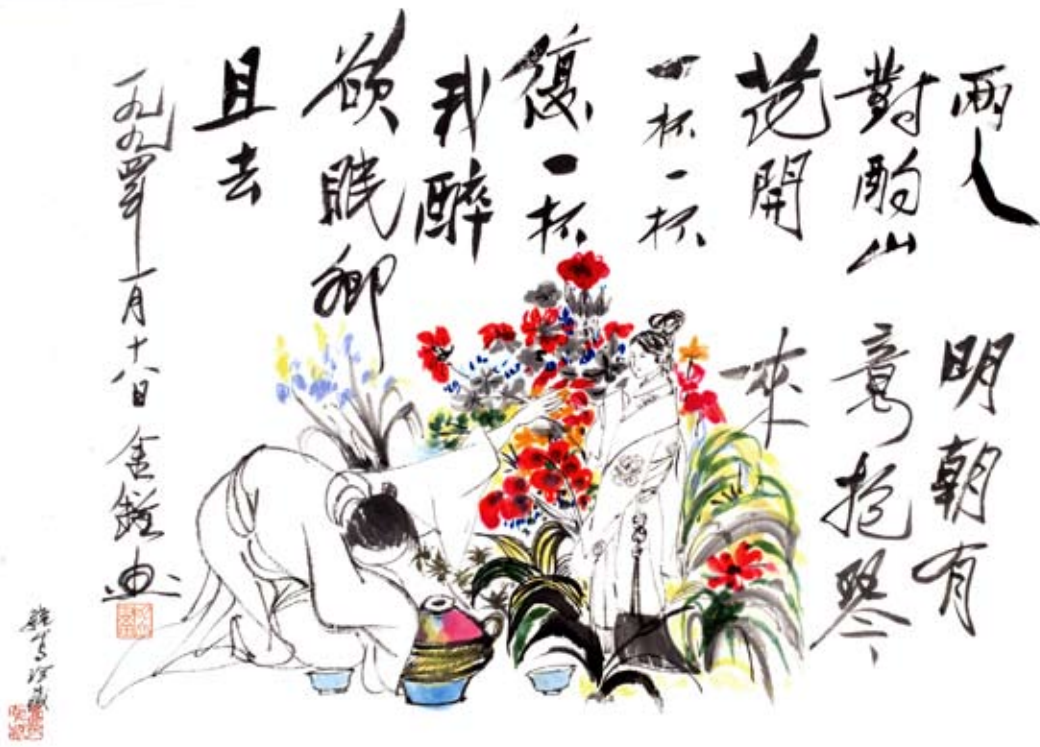 兩人
對酌山
花開
一杯一杯
復一杯
我醉
欲眠卿
且去
明朝有
意抱琴
來
一九九四年一月十八日